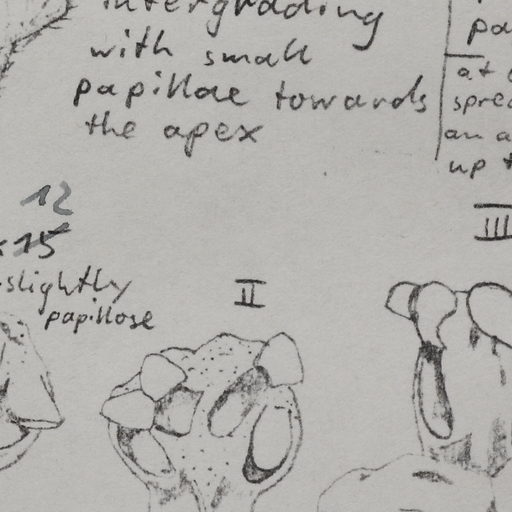 intergrading
with small
papillae towards
the apex
at
an
up
12
15
slightly
papillose
II
III